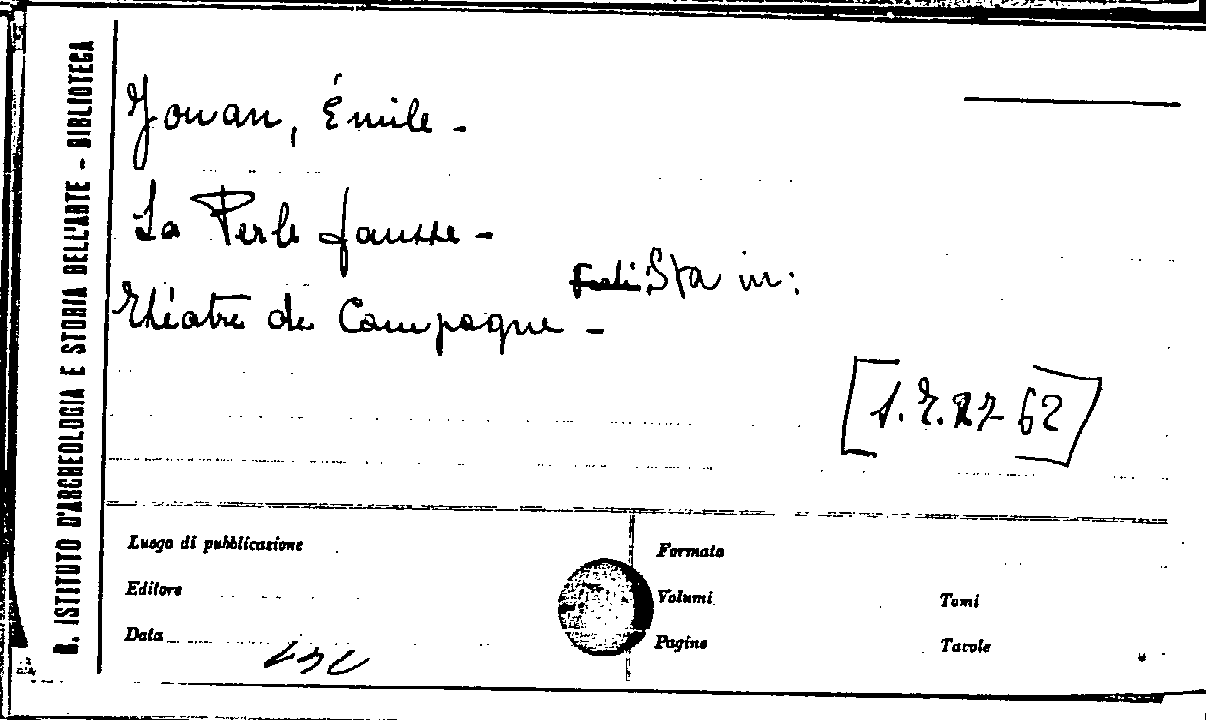 R. ISTITUTO D'ARCHEOLOGIA E STORIA DELL'ARTE - BIBLIOTECA
Jouan, Émile -
La Perle fausse -
Sta in:
Théatre de Campagne -
62
Luogo di pubblicazione
Formato
Editore
Volumi
Tomi
Data
Pagine
Tavole